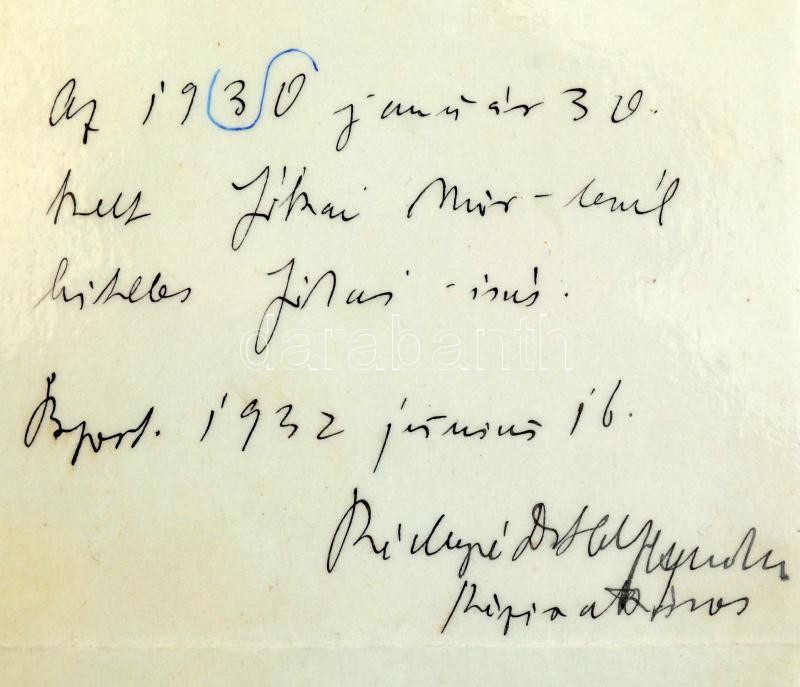 Az 1930 január 30.
kelt Jókai Mór-levél
hiteles Jókai-írás.
darabanth
Bpest. 1932 június 16.